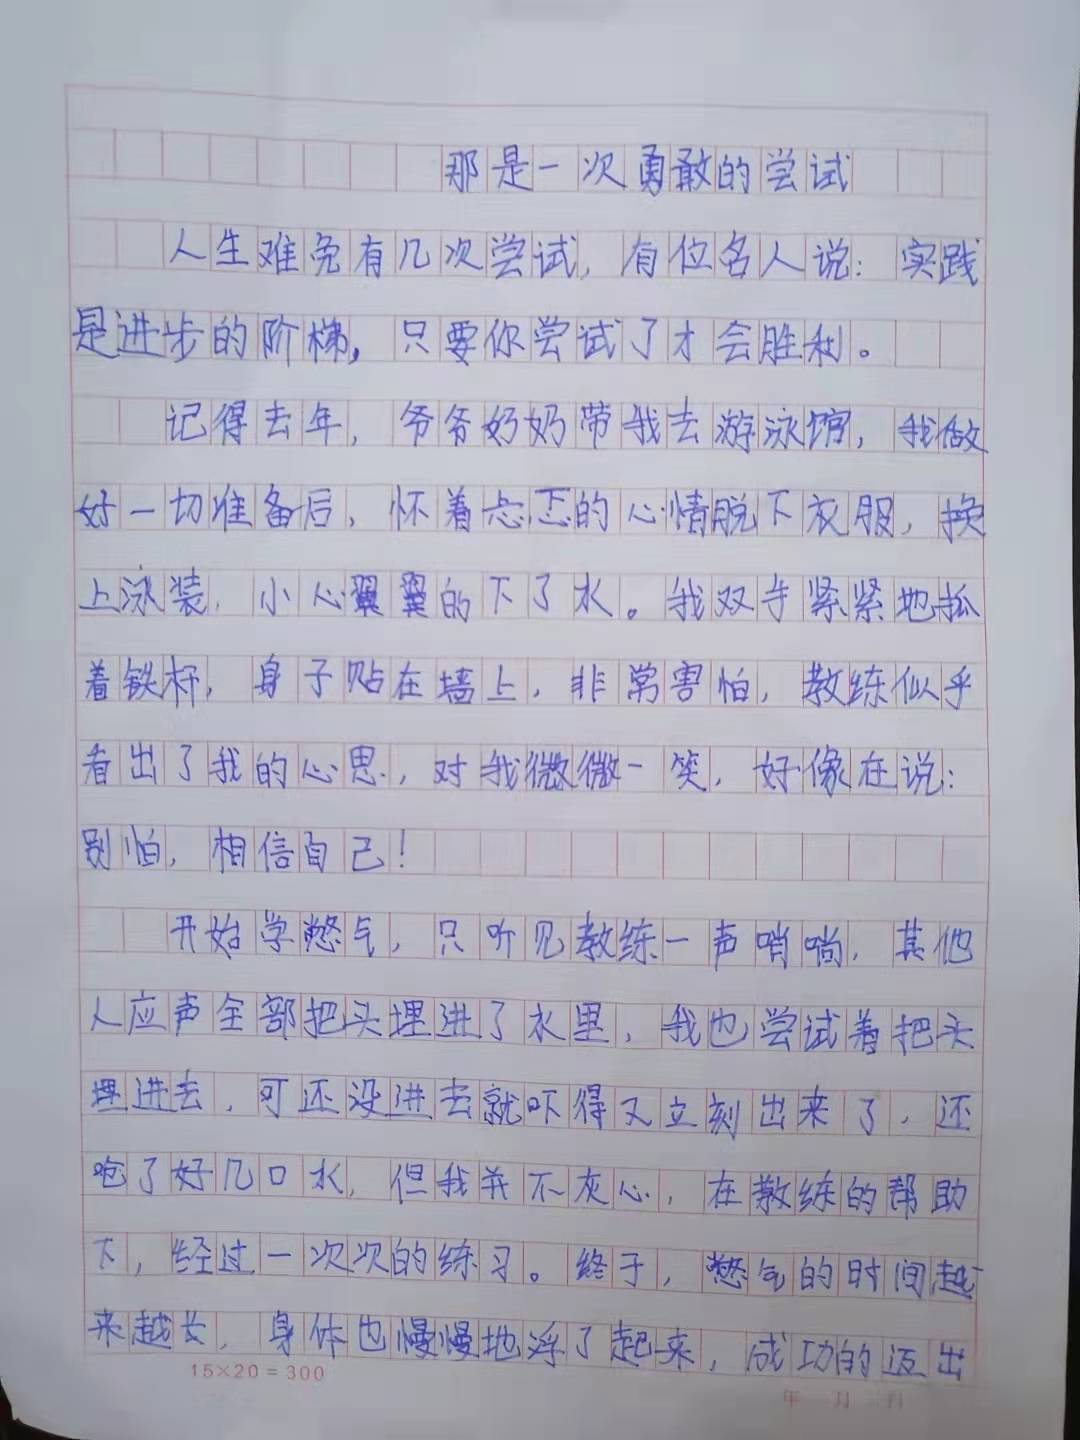 那是一次勇敢的尝试
人生难免有几次尝试，有位名人说：实践
是进步的阶梯，只要你尝试了才会胜利。
记得去年，爷爷奶奶带我去游泳馆，我做
好一切准备后，怀着忐忑的心情脱下衣服，换
上泳装，小心翼翼的下了水。我双手紧紧地抓
着铁杆，身子贴在墙上，非常害怕，教练似乎
看出了我的心思，对我微微一笑，好像在说：
别怕，相信自己！
开始学憋气，只听见教练一声哨响，其他
人应声全部把头埋进了水里，我也尝试着把头
埋进去，可还没进去就吓得又立刻出来了，还
呛了好几口水，但我并不灰心，在教练的帮助
下，经过一次次的练习。终于，憋气的时间越
来越长，身体也慢慢地浮了起来，成功的迈出
15×20=300
年 月 日